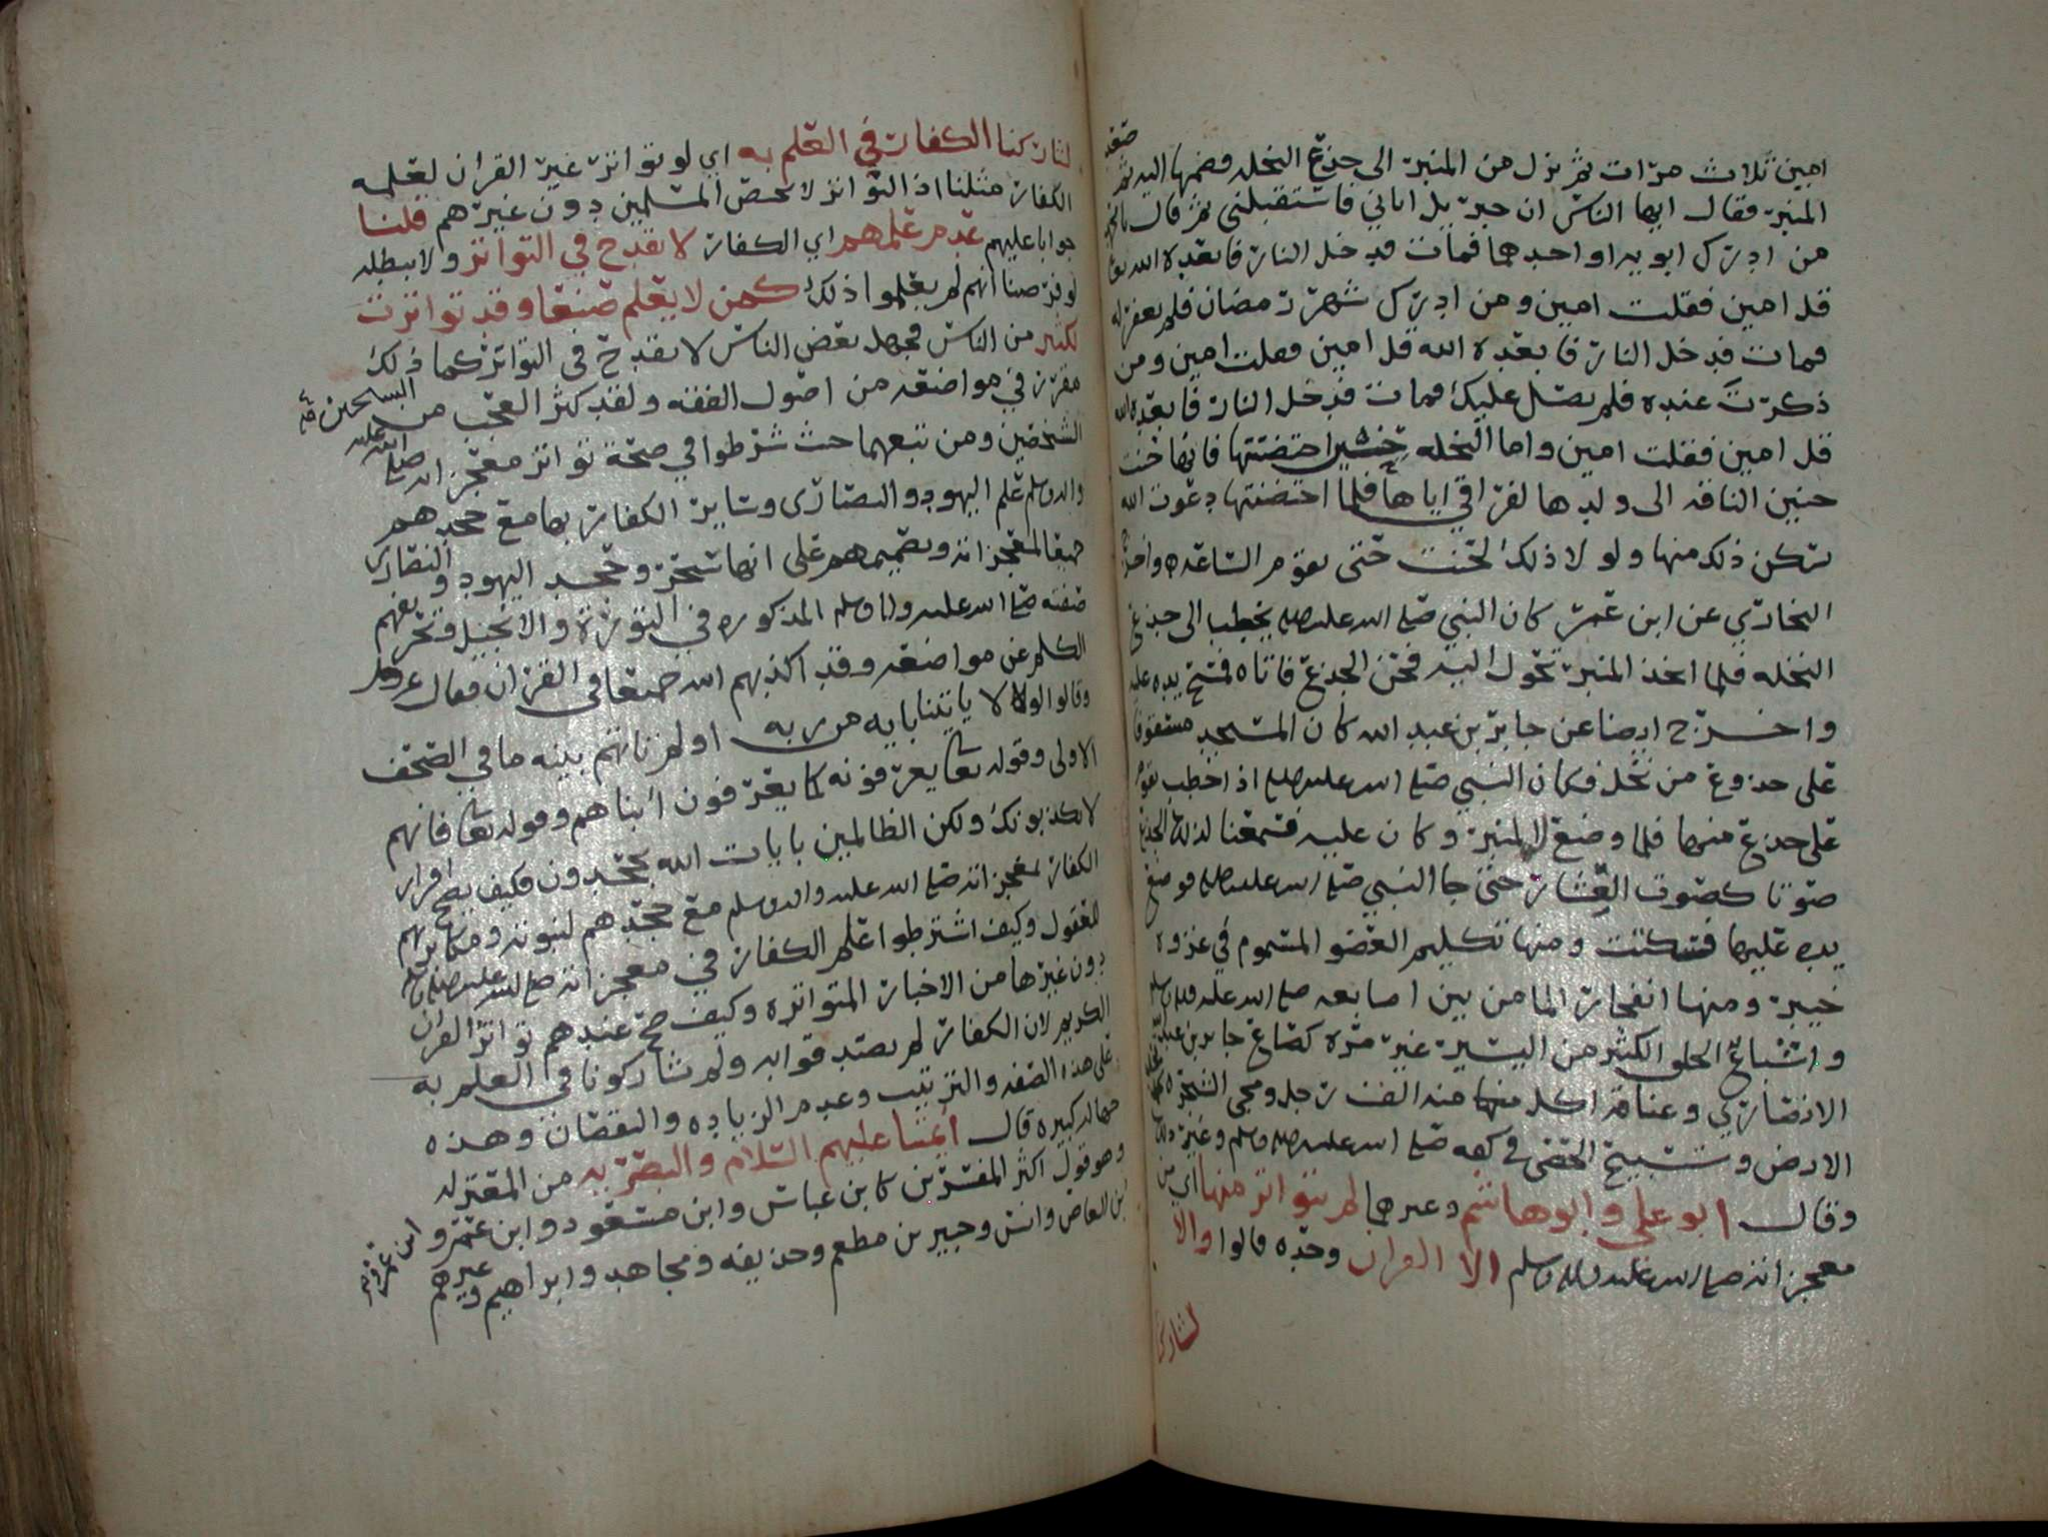 امين ثلاث مرات ثم نزل من المنبر الى جذع النخله فضمها اليه ثم صعد
المنبر فقال ايها الناس ان جبريل اتاني فاستقبلني ثم قال يا محمد
من ادرك ابويه او احدهما فمات فدخل النار فابعده الله تعا
قل امين فقلت امين ومن ادرك شهر رمضان فلم يغفر له
فمات فدخل النار فابعده الله قل امين فقلت امين ومن
ذكرت عنده فلم يصل عليك فمات فدخل النار فابعده الله
قل امين فقلت امين واما النخله احتضنتها فانها حنت
حنين الناقه الى ولدها لفراقي اياها فلما احتضنتها دعوت الله
تسكن ذلك منها ولولا ذلك لحنت حتى تقوم الساعه واخرج
البخاري عن ابن عمر كان النبي صلى الله عليه وسلم يخطب الى جذع
النخله فلما اتخذ المنبر تحول اليه فحن الجذع فاتاه فمسح بيده عليه
واخرج ايضا عن جابر بن عبد الله كان المسجد مسقوفا
على جذوع من نخل فكان النبي صلى الله عليه وسلم اذا خطب يقوم
على جذع منها فلما وضع المنبر وكان عليه فسمعنا لذلك الجذع
صوتا كصوت العشار حتى جا النبي صلى الله عليه وسلم فوضع
يده عليها فسكنت ومنها تكليم العضو المسموم في غزوه
خيبر ومنها انفجار الما من بين اصابعه صلى الله عليه واله وسلم
واشباع الخلق الكثير من اليسير غير مره كصاع جابر بن عبدالله
الانصاري وعناقه اكل منه الف رجل ومجي الشجره
الارض وتسبيح الحصى في كفه صلى الله عليه وسلم وغير ذلك
وقال ابو علي وابو هاشم وغيرهما لم يتواتر منها اي من
معجزاته صلى الله عليه واله وسلم الا القران وحده قالوا والا
لشاركنا
لشاركنا الكفار في العلم به اي لو تواتر غير القران لعلمه
الكفار مثلنا اذ التواتر لا يخص المسلمين دون غيرهم قلنا
جوابا عليهم عدم علمهم اي الكفار لا يقدح في التواتر ولا يبطله
لو فرضنا انهم لم يعلموا ذلك كمن لا يعلم صنعا وقد تواترت
لكثير من الناس فجهل بعض الناس لا يقدح في التواتر كما ذلك
مقرر في مواضعه من اصول الفقه ولقد كثر العجب من
الشيخين ومن تبعهما حيث شرطوا في صحة تواتر معجزاته صلى الله عليه
واله وسلم علم اليهود والنصارى وساير الكفار بها مع جحدهم
جميعا لمعجزاته وتصميمهم على انها سحر وجحد اليهود والنصارى
صفته صلى الله عليه واله وسلم المذكوره في التوراة والانجيل وتحريفهم
الكلم عن مواضعه وقد اكذبهم الله جميعا في القران فقال عز وجل
وقالوا لولا ياتينا بايه من ربه اولم تاتهم بينه ما في الصحف
الاولى وقوله تعا يعرفونه كما يعرفون ابناهم وقوله تعا فانهم
لا يكذبونك ولكن الظالمين بايات الله يجحدون فكيف يصح اقرار
الكفار بمعجزاته صلى الله عليه واله وسلم مع جحدهم لنبوته ومكابرتهم
العقول وكيف اشترطوا علم الكفار في معجزاته صلى الله عليه واله وسلم
دون غيرها من الاخبار المتواتره وكيف صح عندهم تواتر القران
الكريم لان الكفار لم يصدقوا به ولم يشاركونا في العلم به
على هذه الصفه والترتيب وعدم الزياده والنقصان وهذه
جهاله كبيره قال ائمتنا عليهم السلام والبصريه من المعتزله
وهو قول اكثر المفسرين كابن عباس وابن مسعود وابن عمر وابن عمرو
بن العاص وانس وجبير بن مطعم وحذيفه ومجاهد وابراهيم وغيرهم